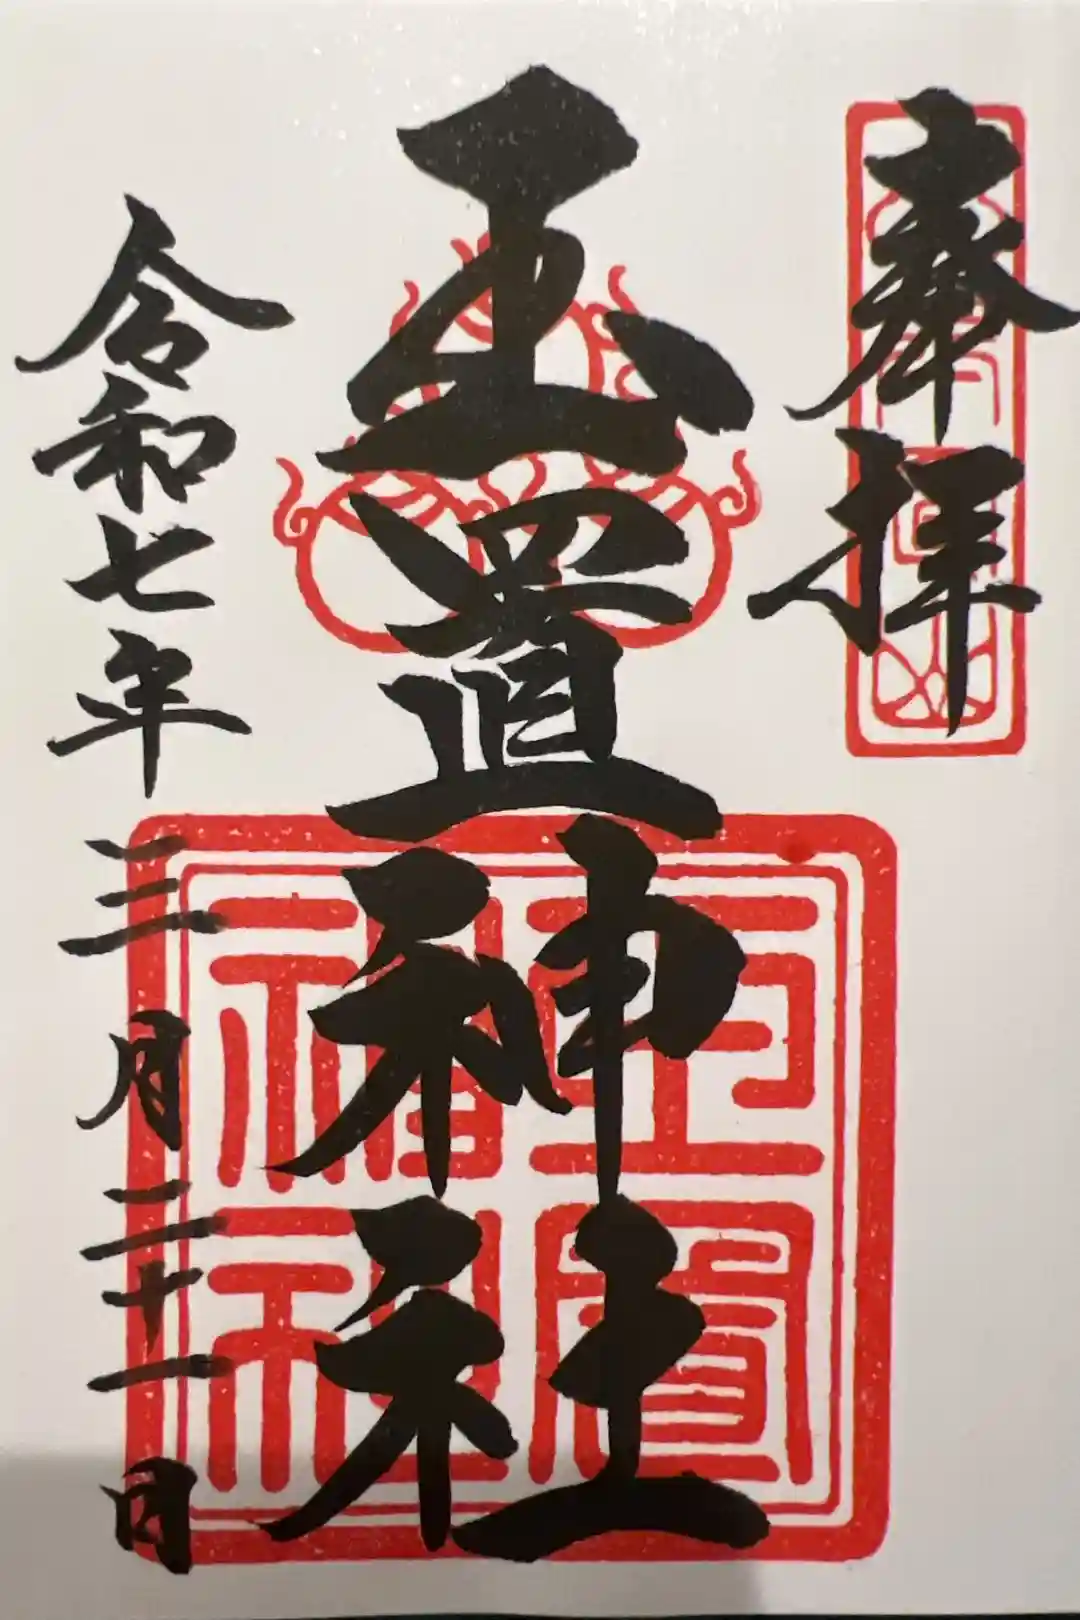 奉拝
玉置神社
令和七年三月二十一日